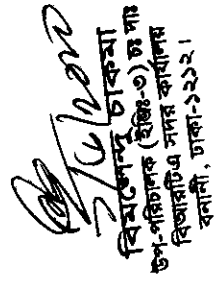 বিমলেন্দু চাকমা
উপ-পরিচালক (ইঞ্জিঃ-৩) চঃ দাঃ
বিআরটিএ সদর কার্যালয়
বনানী, ঢাকা-১২১২।